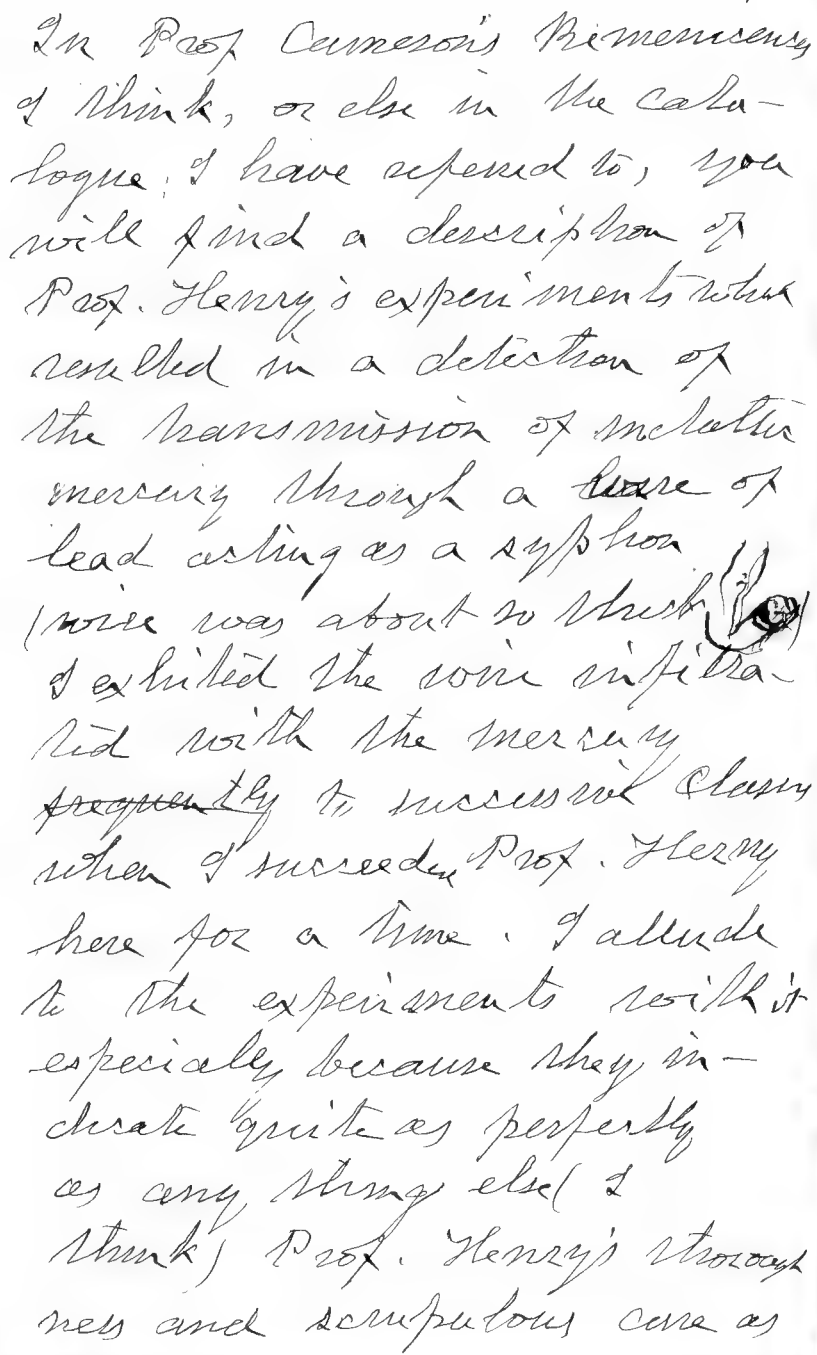 In Prof Cameron's Rimeniscences
I think, or else in the cata-
logue, I have referred to, you
will find a description of
Prof. Henry's experiments which
resulted in a detection of
the transmission of metallic
mercury through a wire of
lead acting as a syphon
(wire was about so thick )
I exhited the wire infiltra-
ted with the mercury
frequently to successive classes
when I succeeded Prof. Henry
here for a time. I allude
to the experiments with it
especially because they in-
dicate quite as perfectly
as any thing else (I
think) Prof. Henry's thorough
ness and scrupulous care as